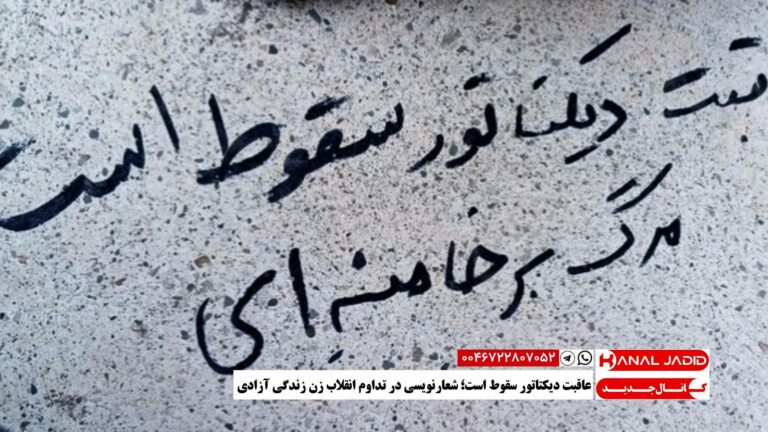 قبت دیکتاتور سقوط است
مرگ بر خامنه‌ای
۰۰۴۶۷۲۲۸۰۷۰۵۲
KANAL JADID
کانال جدید
عاقبت دیکتاتور سقوط است؛ شعارنویسی در تداوم انقلاب زن زندگی آزادی